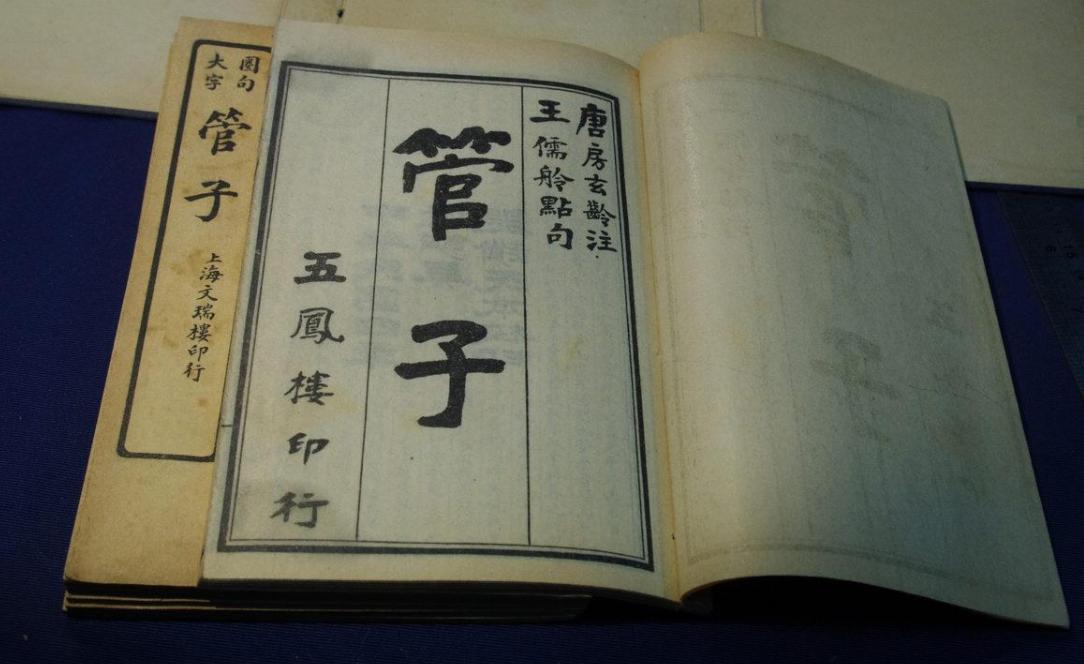 唐房玄齡注
王儒舲點句
管子
五鳳樓印行
圈句
大字
管子
上海文瑞樓印行